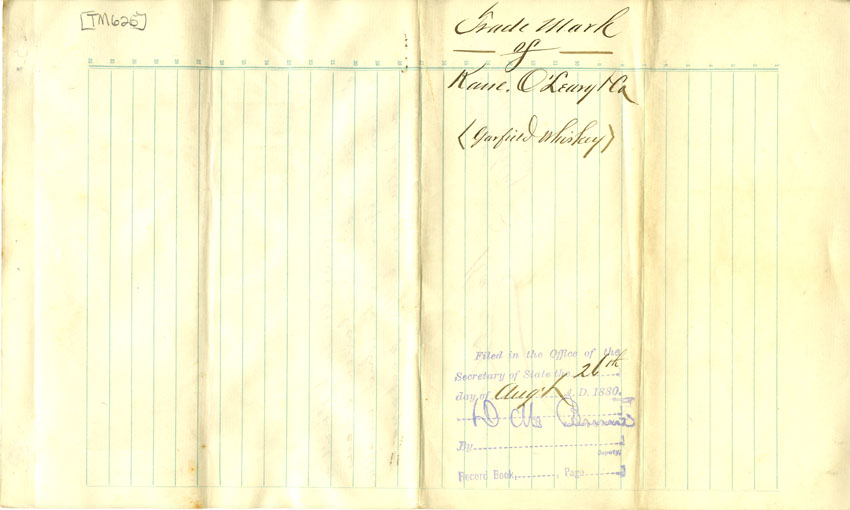 [TM626]
Trade Mark
of
Kane, O'Leary & Co
(Garfield Whiskey)
Filed in the Office of the
Secretary of State the 26th
day of Aug't A.D. 1880.
By
Deputy
Record Book, , Page